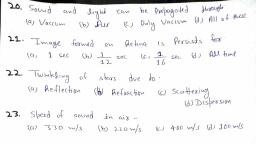 20. Sound and light can be Propagated through
(a) Vaccum (b) Air (c) Only Vaccum (d) All of these
21. Image formed on Retina is Persists for
(a) 1 sec (b) 1/12 sec (c) 1/16 sec (d) All time
22. Twinkling of stars due to-
(a) Reflection (b) Refraction (c) Scattering
(d) Dispersion
23. Speed of sound in air-
(a) 330 m/s (b) 220 m/s (c) 400 m/s (d) 100 m/s